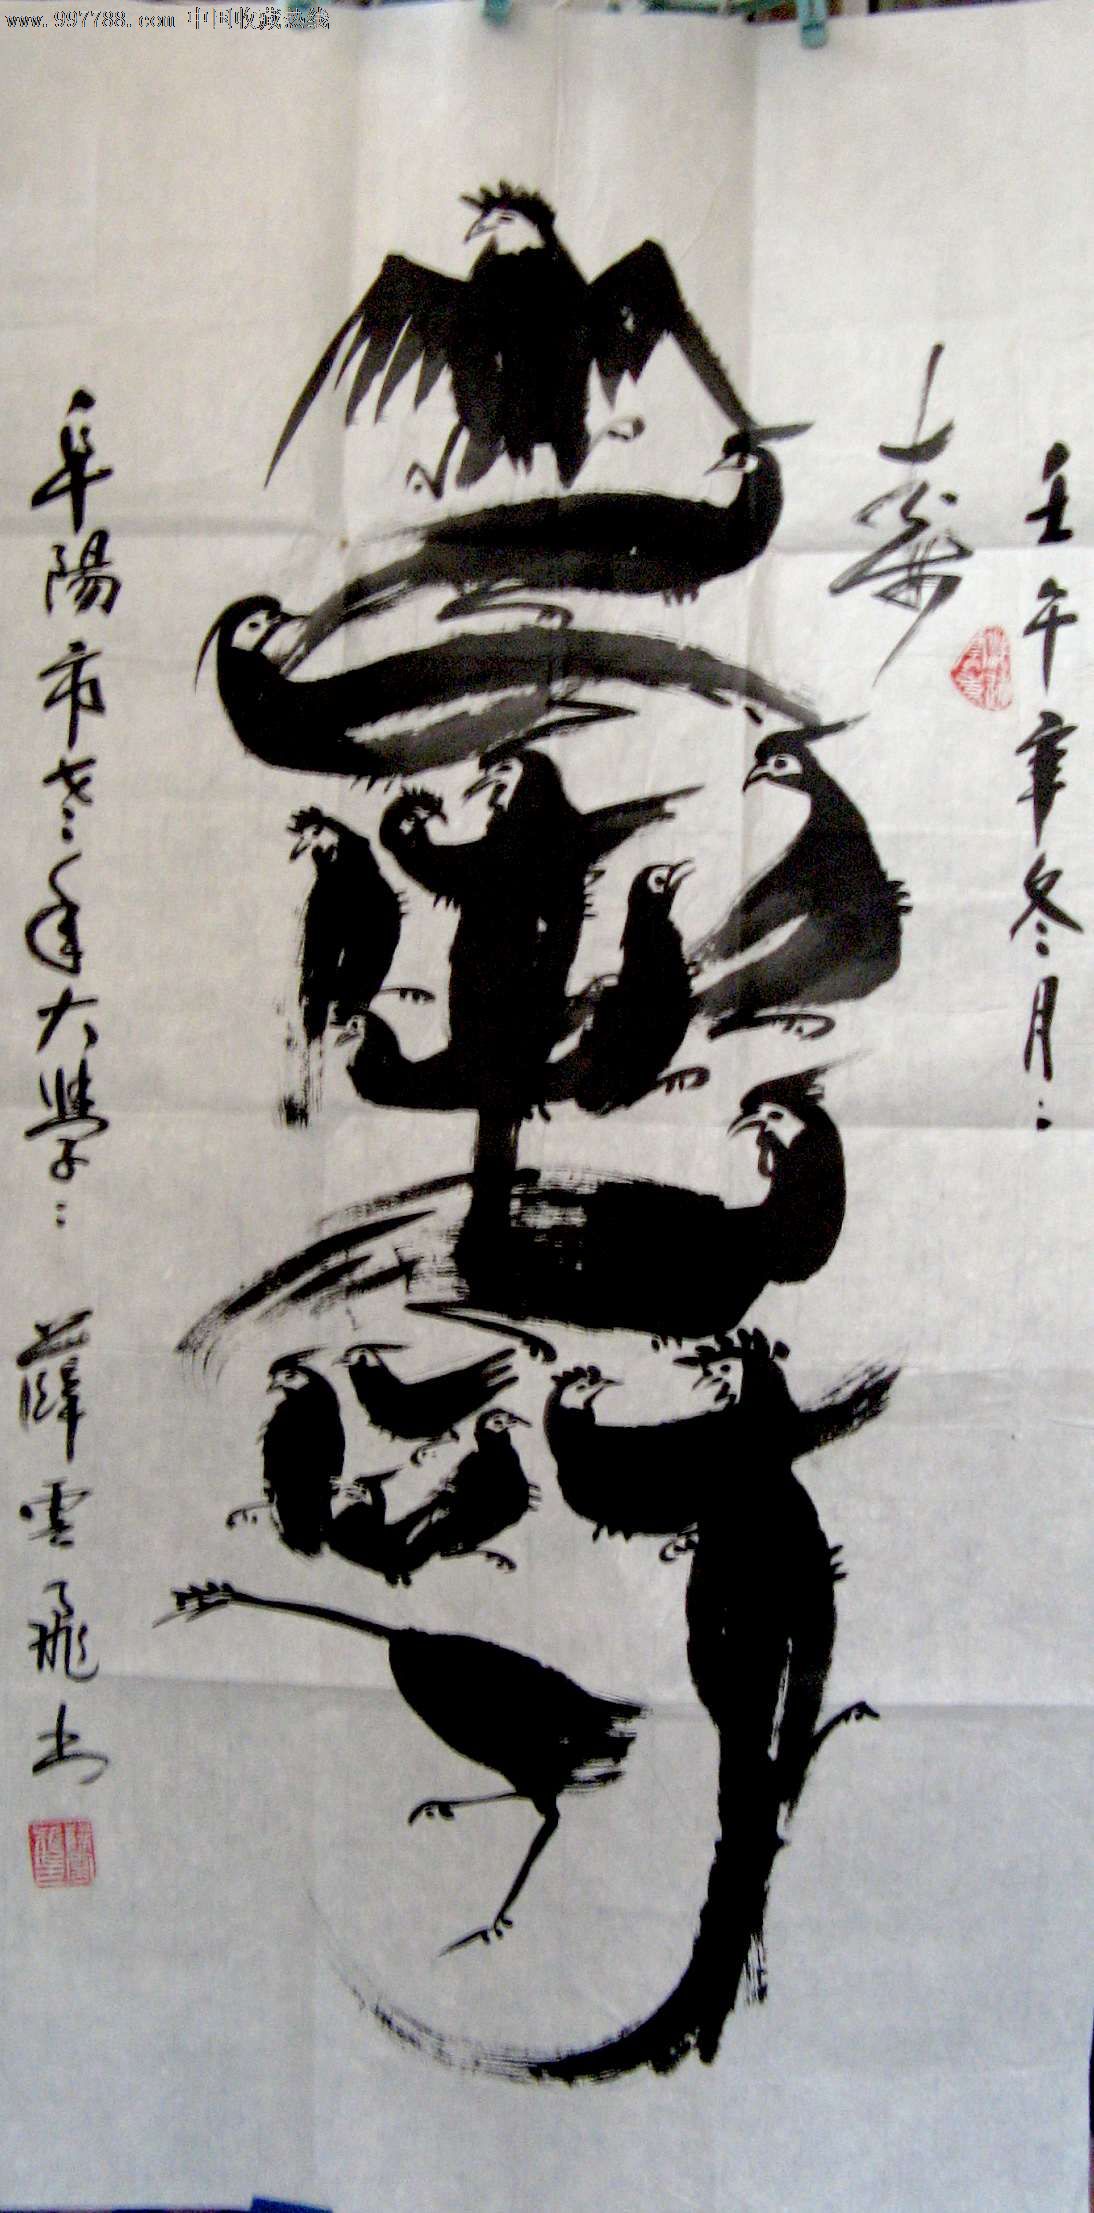 www.997788.com 中国收藏热线
壽
上壽
壬午年冬月
阜陽市老年大學
薛雲飛书